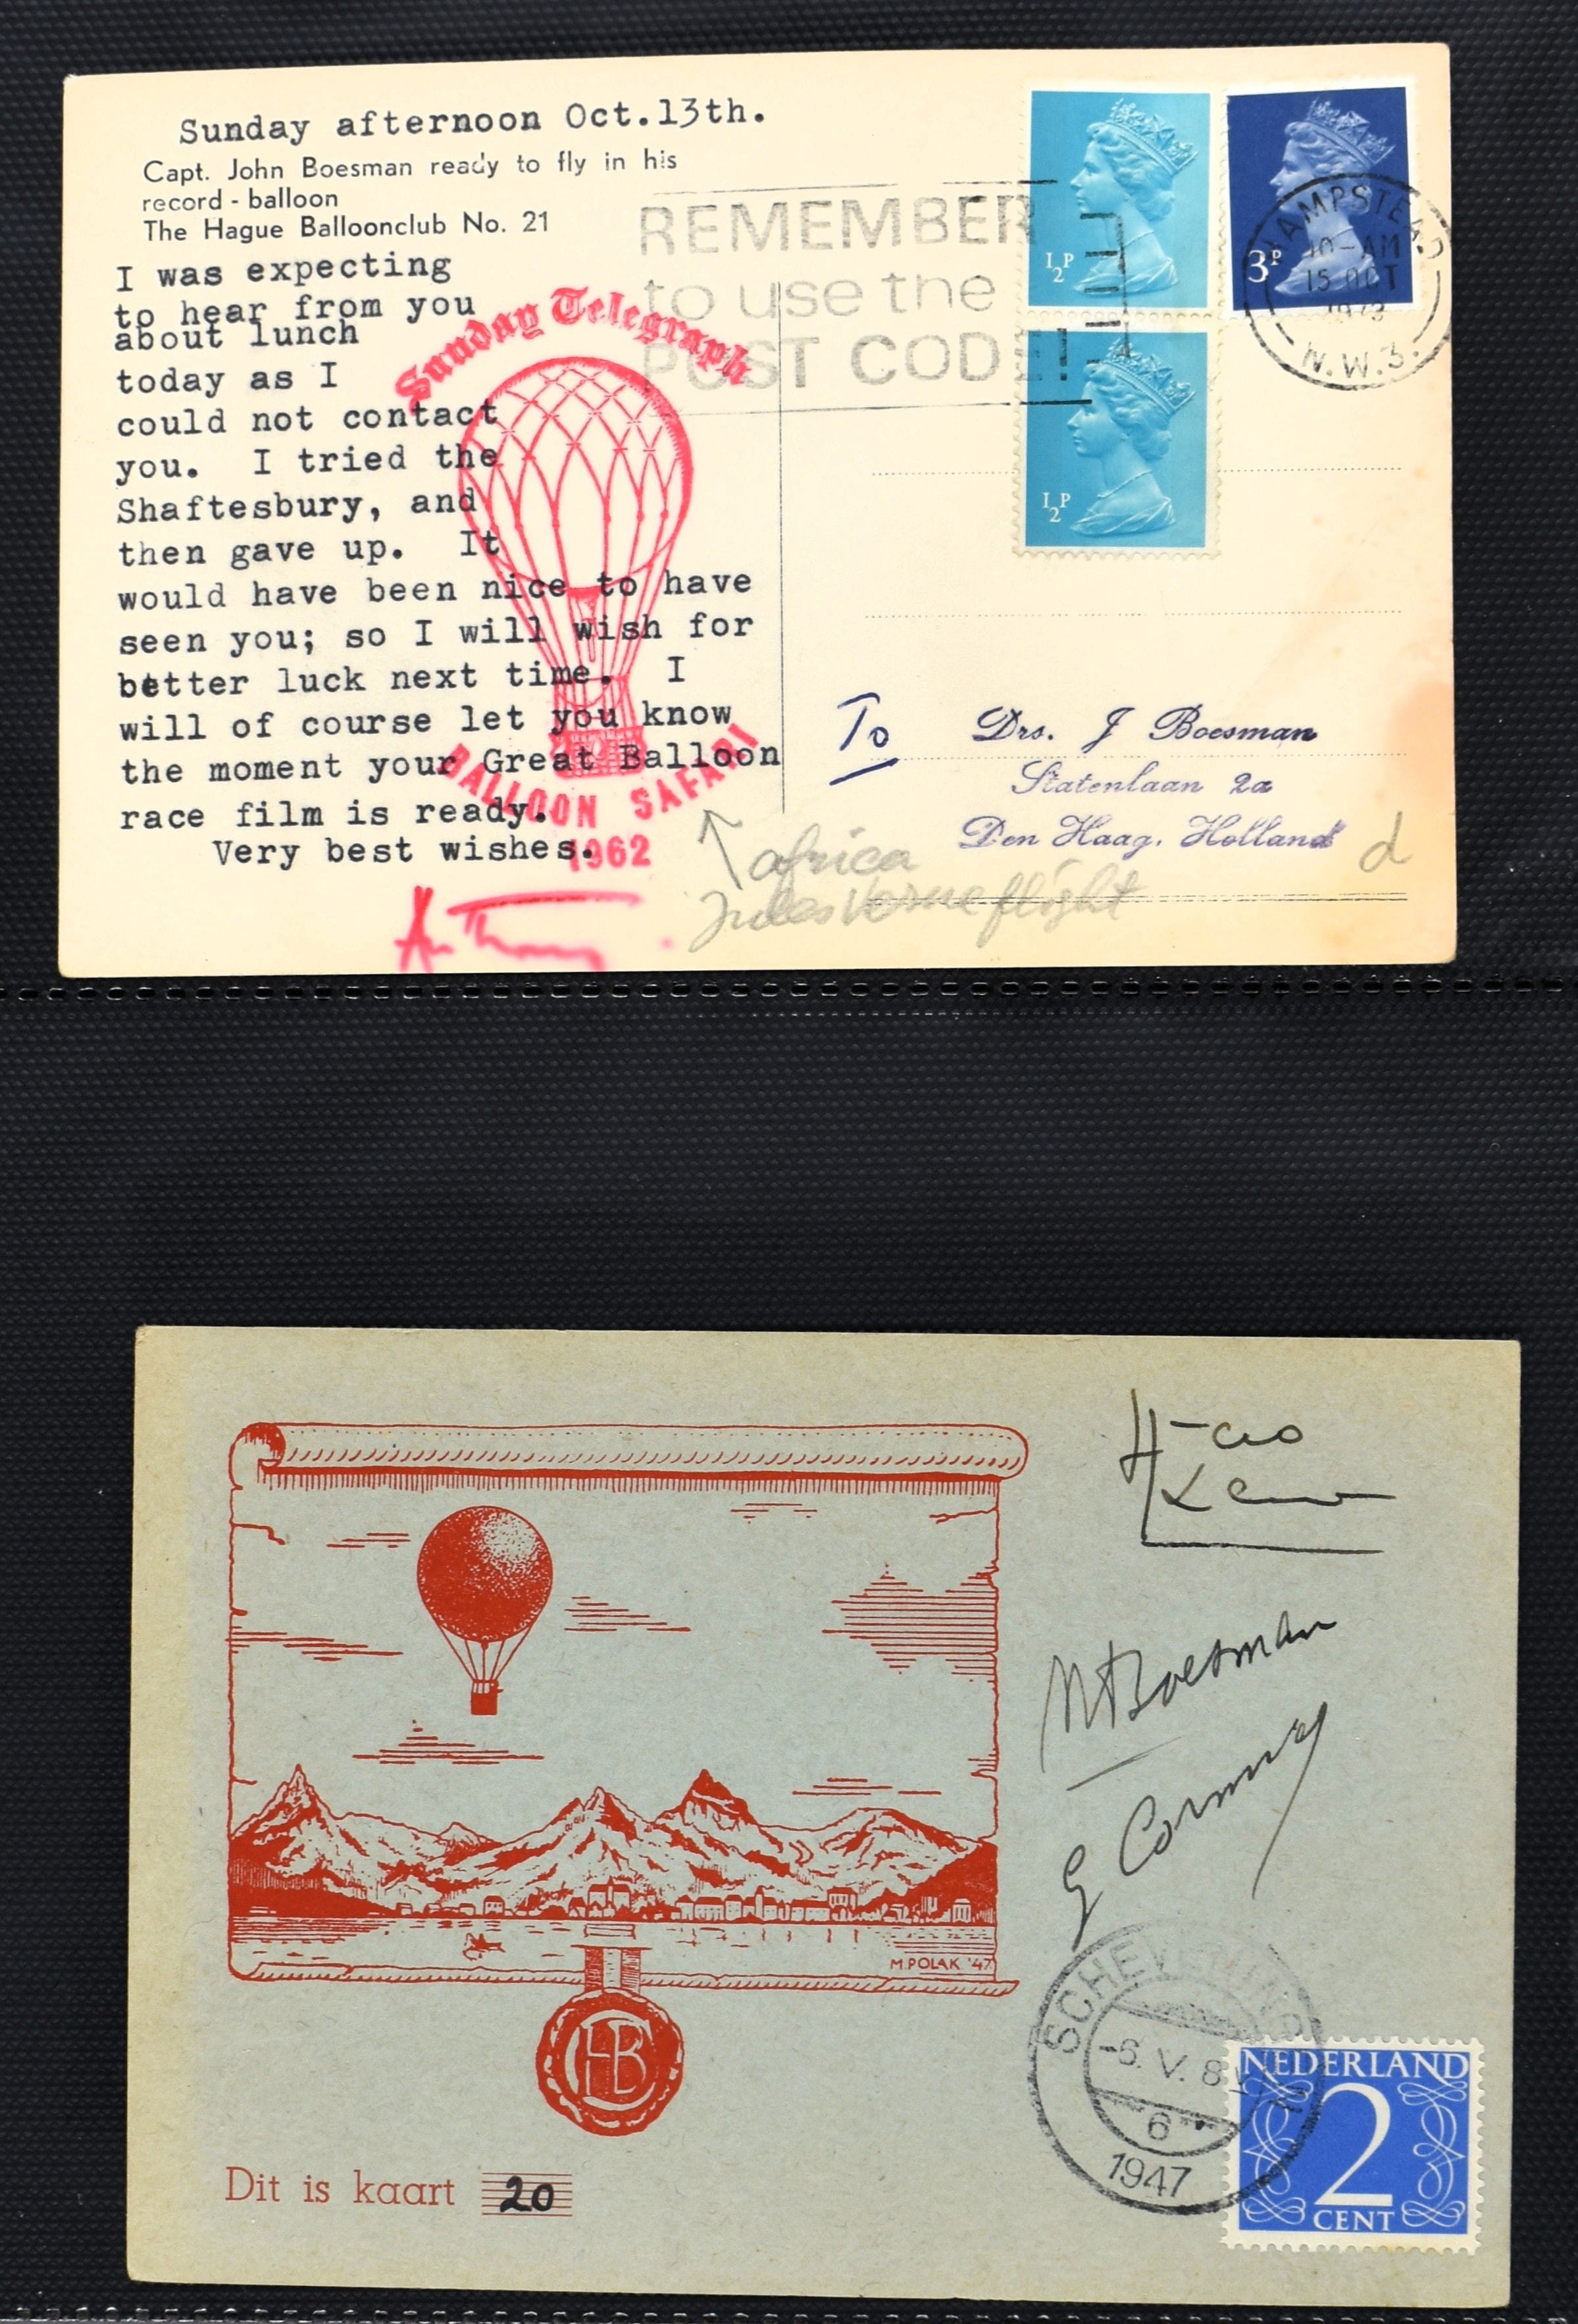 Sunday afternoon Oct.13th.
Capt. John Boesman ready to fly in his
record - balloon
The Hague Balloonclub No. 21
I was expecting
to hear from you
about lunch
today as I
could not contact
you. I tried the
Shaftesbury, and
then gave up. It
would have been nice to have
seen you; so I will wish for
better luck next time. I
will of course let you know
the moment your Great Balloon
race film is ready.
Very best wishes.
Sunday Telegraph
BALLOON SAFARI
1962
REMEMBER
to use the
POST CODE!
½P
3P
½P
HAMPSTEAD
10-AM
15 OCT
1973
N.W.3.
To Drs. J Boesman
Statenlaan 2a
Den Haag, Holland
d
africa
Jules Verne flight
Boesman
M.POLAK '47
Dit is kaart 20
SCHEVENINGEN
-6. V. 8
6
1947
NEDERLAND
2
CENT